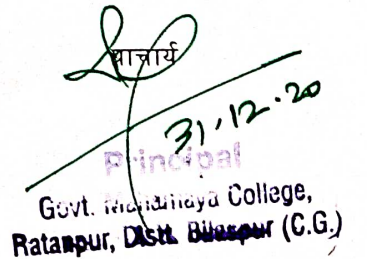 प्राचार्य
31.12.20
Principal
Govt. Mahamaya College,
Ratanpur, Distt. Bilaspur (C.G.)